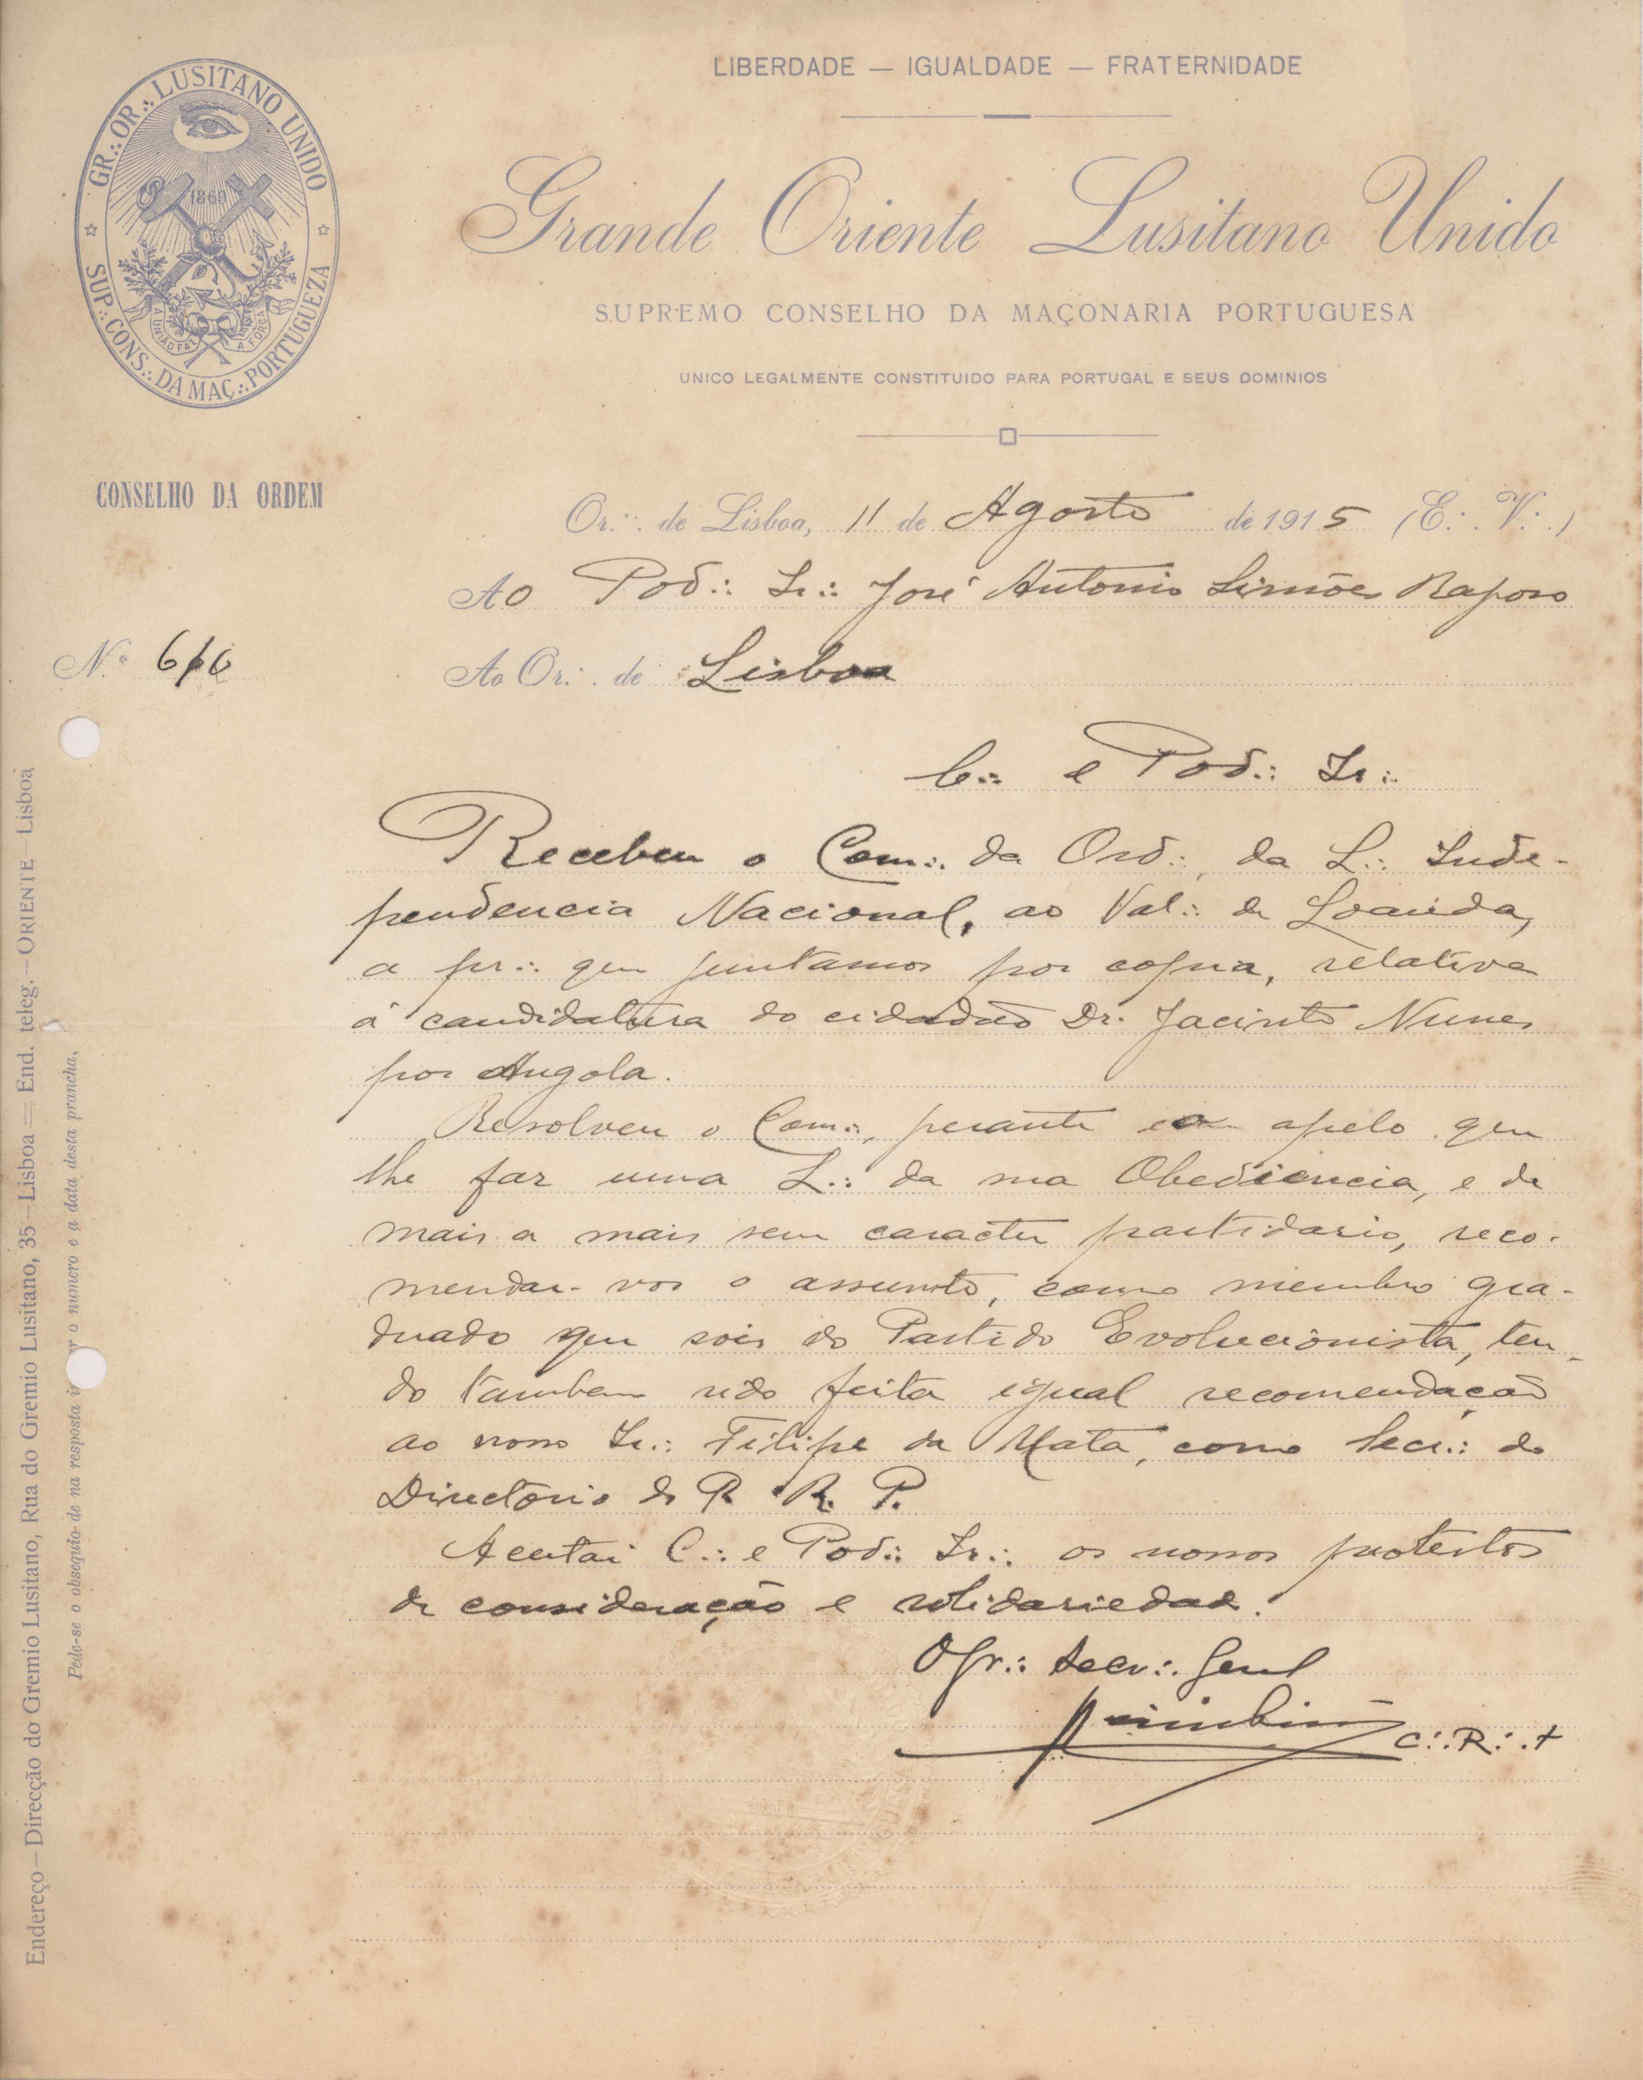 LIBERDADE — IGUALDADE — FRATERNIDADE
GR∴ OR∴ LUSITANO UNIDO
SUP∴ CONS∴ DA MAÇ∴ PORTUGUEZA
1869
A UNIÃO FAZ A FORÇA
Grande Oriente Lusitano Unido
SUPREMO CONSELHO DA MAÇONARIA PORTUGUESA
UNICO LEGALMENTE CONSTITUIDO PARA PORTUGAL E SEUS DOMINIOS
CONSELHO DA ORDEM
Or∴ de Lisboa, 11 de Agosto de 1915 (E∴ V∴)
Ao Pod∴ Ir∴ José Antonio Simões Raposo
N.º 616
Ao Or∴ de Lisboa
C∴ e Pod∴ Ir∴
Recebeu o Con∴ da Ord∴, da L∴ Inde-
pendencia Nacional, ao Val∴ de Loanda,
a pr∴ que juntamos por copia, relativa
á candidatura do cidadão Dr. Jacinto Nunes
por Angola.
Resolveu o Con∴, perante o apelo que
lhe faz uma L∴ da sua Obediencia, e de
mais a mais sem caracter partidario, reco-
mendar-vos o assunto, como membro gra-
duado que sois do Partido Evolucionista, ten-
do tambem sido feita igual recomendação
ao nosso Ir∴ Filipe da Mata, como Secr∴ do
Directorio do P. R. P.
Aceitai C∴ e Pod∴ Ir∴ os nossos protestos
de consideração e solidariedade.
O Gr∴ Secr∴ Geral
C∴ R∴ +
Endereço—Direcção do Gremio Lusitano, Rua do Gremio Lusitano, 35—Lisboa = End. teleg.—ORIENTE—Lisboa
Pede-se o obsequio de na resposta o numero e a data desta prancha.